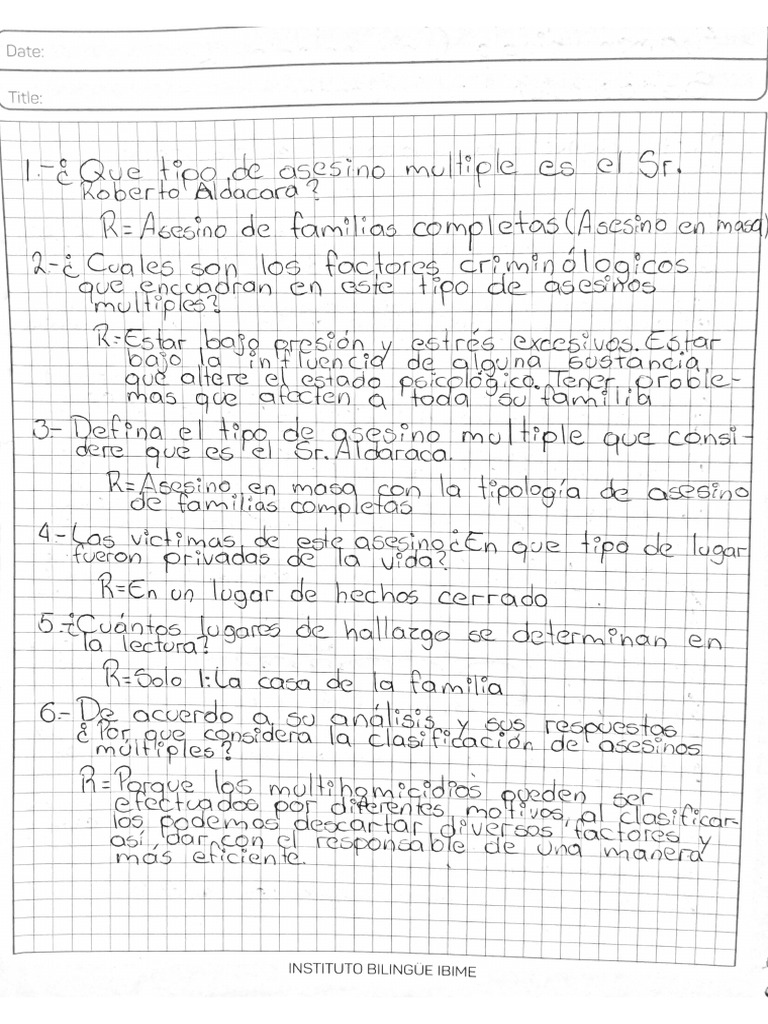 Date:
Title:
1.-¿Que tipo de asesino multiple es el Sr.
Roberto Aldacara?
R=Asesino de familias completas(Asesino en masa)
2-¿Cuales son los factores criminólogicos
que encuadran en este tipo de asesinos
multiples?
R=Estar bajo presión y estrés excesivos. Estar
bajo la influencia de alguna sustancia
que altere el estado psicológico. Tener proble-
mas que afecten a toda su familia
3.- Defina el tipo de asesino multiple que consi-
dere que es el Sr. Aldaraca.
R=Asesino en masa con la tipología de asesino
de familias completas
4-Las victimas de este asesino ¿En que tipo de lugar
fueron privadas de la vida?
R=En un lugar de hechos cerrado
5.-¿Cuántos lugares de hallazgo se determinan en
la lectura?
R=Solo 1:La casa de la familia
6.-De acuerdo a su análisis y sus respuestas
¿Por que considera la clasificación de asesinos
múltiples?
R=Porque los multihomicidios pueden ser
efectuados por diferentes motivos, al clasificar-
los podemos descartar diversos factores y
así, dar con el responsable de una manera
más eficiente.
INSTITUTO BILINGÜE IBIME